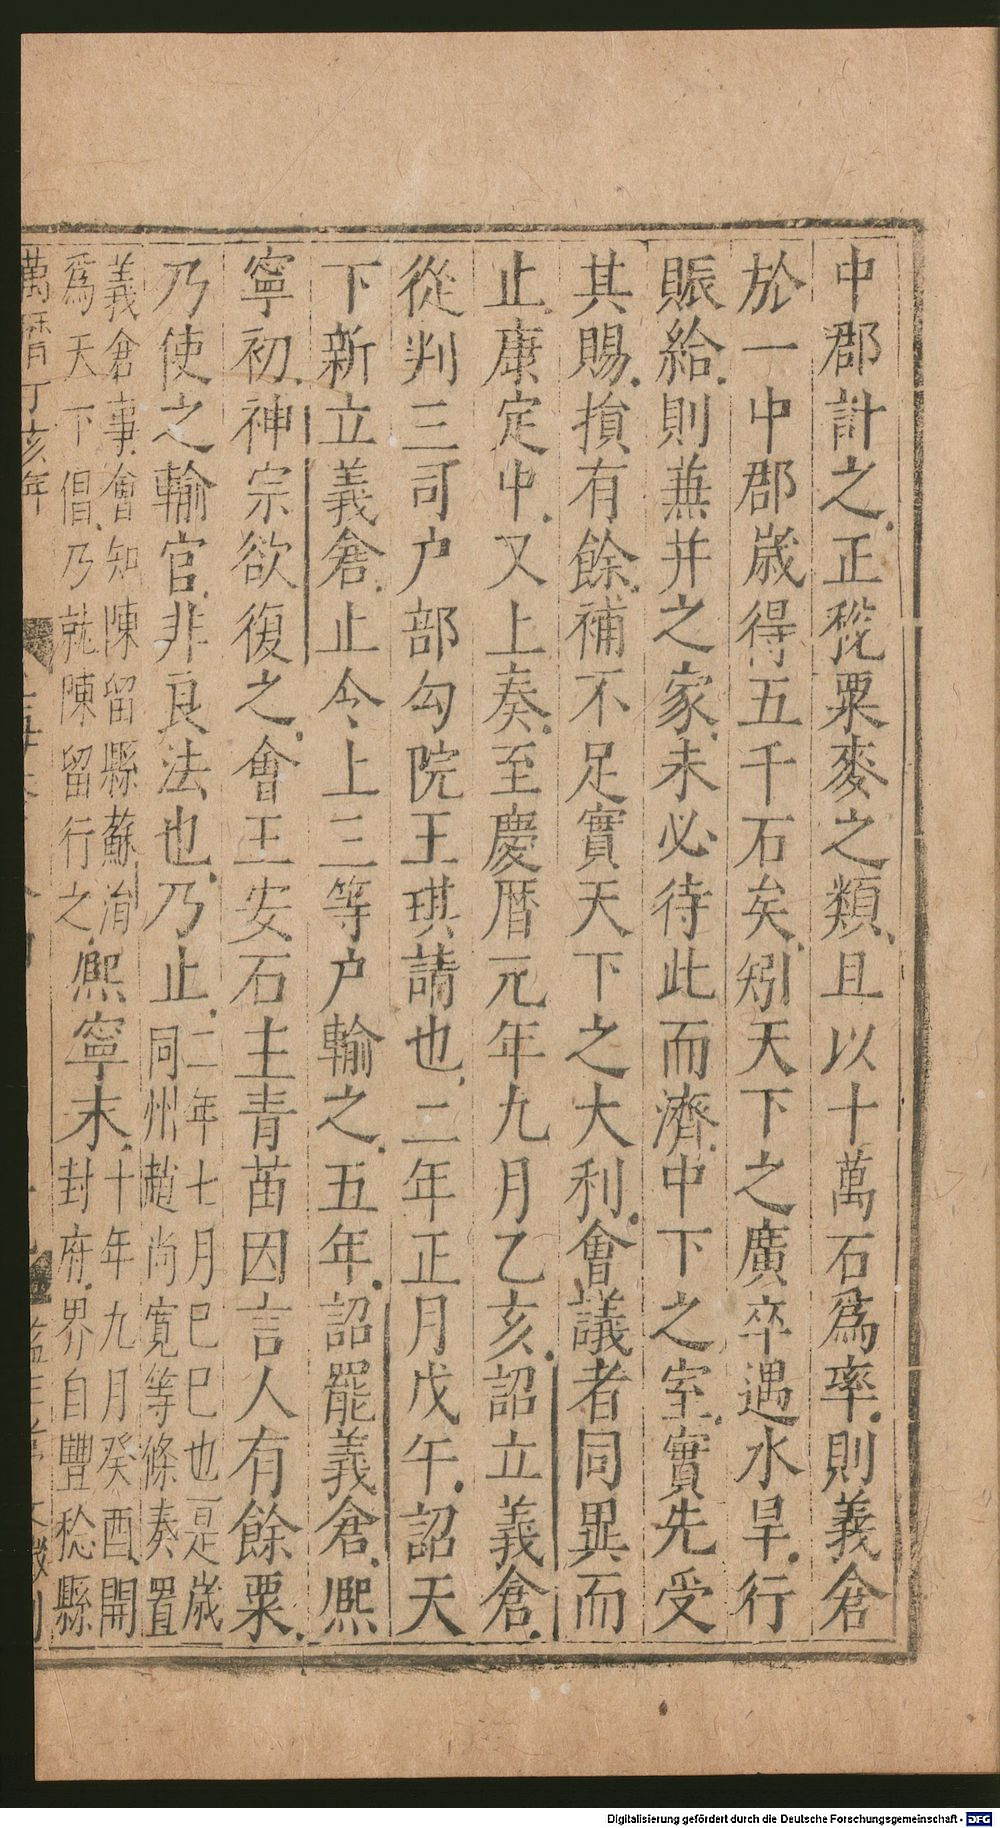 中郡計之正稅粟麥之類且以十萬石爲率則義倉
於一中郡歲得五千石矣矧天下之廣卒遇水旱行
賑給則兼并之家未必待此而濟中下之室實先受
其賜損有餘補不足實天下之大利會議者同異而
止康定中又上奏至慶曆元年九月乙亥詔立義倉
從判三司户部勾院王琪請也二年正月戊午詔天
下新立義倉止令上三等户輸之五年詔罷義倉熙
寧初神宗欲復之會王安石主青苗因言人有餘粟
乃使之輸官非良法也乃止二年七月巳巳也是歲
同州趙尚寛等條奏置
義倉事會知陳留縣蘇涓
爲天下倡乃就陳留行之熙寧末十年九月癸酉開
封府界自豐稔縣
萬曆丁亥年
Digitalisierung gefördert durch die Deutsche Forschungsgemeinschaft - DFG